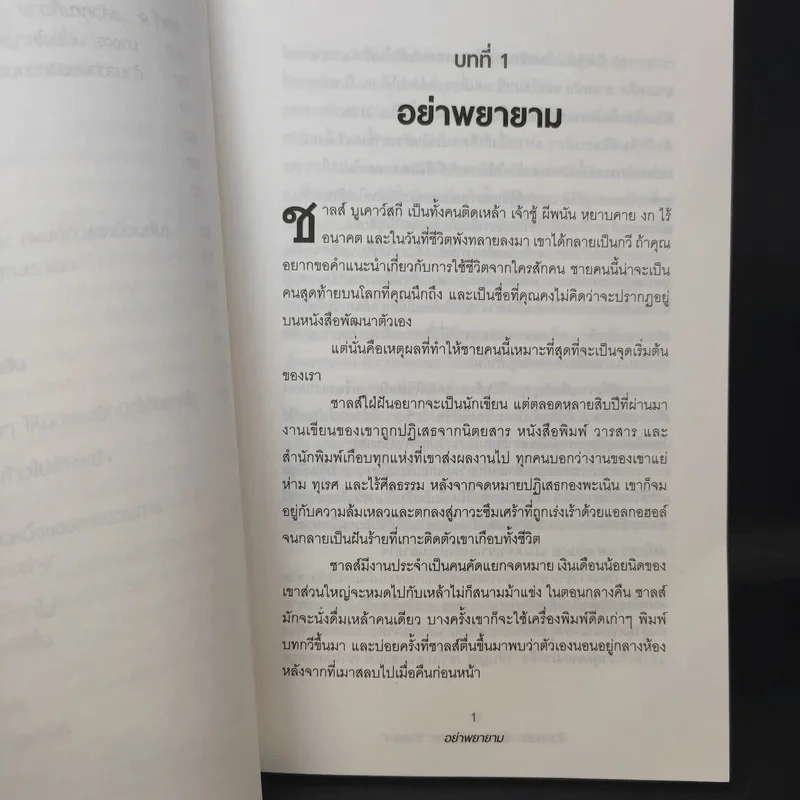 บทที่ 1
อย่าพยายาม
ชาลส์ บูเคาว์สกี เป็นทั้งคนติดเหล้า เจ้าชู้ ผีพนัน หยาบคาย งก ไร้
อนาคต และในวันที่ชีวิตพังทลายลงมา เขาได้กลายเป็นกวี ถ้าคุณ
อยากขอคำแนะนำเกี่ยวกับการใช้ชีวิตจากใครสักคน ชายคนนี้น่าจะเป็น
คนสุดท้ายบนโลกที่คุณนึกถึง และเป็นชื่อที่คุณคงไม่คิดว่าจะปรากฏอยู่
บนหนังสือพัฒนาตัวเอง
แต่นั่นคือเหตุผลที่ทำให้ชายคนนี้เหมาะที่สุดที่จะเป็นจุดเริ่มต้น
ของเรา
ชาลส์ใฝ่ฝันอยากจะเป็นนักเขียน แต่ตลอดหลายสิบปีที่ผ่านมา
งานเขียนของเขาถูกปฏิเสธจากนิตยสาร หนังสือพิมพ์ วารสาร และ
สำนักพิมพ์เกือบทุกแห่งที่เขาส่งผลงานไป ทุกคนบอกว่างานของเขาแย่
ห่าม ทุเรศ และไร้ศีลธรรม หลังจากจดหมายปฏิเสธกองพะเนิน เขาก็จม
อยู่กับความล้มเหลวและตกลงสู่ภาวะซึมเศร้าที่ถูกเร่งเร้าด้วยแอลกอฮอล์
จนกลายเป็นฝันร้ายที่เกาะติดตัวเขาเกือบทั้งชีวิต
ชาลส์มีงานประจำเป็นคนคัดแยกจดหมาย เงินเดือนน้อยนิดของ
เขาส่วนใหญ่จะหมดไปกับเหล้าไม่ก็สนามม้าแข่ง ในตอนกลางคืน ชาลส์
มักจะนั่งดื่มเหล้าคนเดียว บางครั้งเขาก็จะใช้เครื่องพิมพ์ดีดเก่าๆ พิมพ์
บทกวีขึ้นมา และบ่อยครั้งที่ชาลส์ตื่นขึ้นมาพบว่าตัวเองนอนอยู่กลางห้อง
หลังจากที่เมาสลบไปเมื่อคืนก่อนหน้า
1
อย่าพยายาม